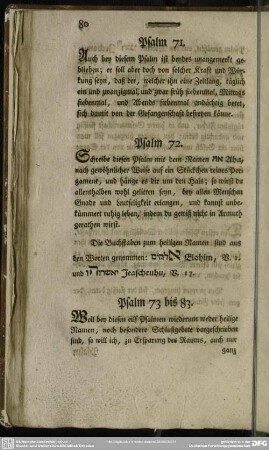 80
Psalm 71.
Auch bey diesem Psalm ist beydes unangemerkt geblieben;
er soll aber doch von solcher Kraft und Würkung
seyn, daß der, welcher ihn eine Zeitlang, täglich
ein und zwanzigmal, und zwar früh siebenmal, Mittags
siebenmal, und Abends siebenmal andächtig betet,
sich damit von der Gefangenschaft befreyen könne.
Psalm 72.
Schreibe diesen Psalm mit dem Namen Aha,
nach gewöhnlicher Weise auf ein Stückchen reines Pergament,
und hänge es dir um den Hals; so wirst du
allenthalben wohl gelitten seyn, bey allen Menschen
Gnade und Leutseligkeit erlangen, und kannst unbekümmert
ruhig leben, indem du gewiß nicht in Armuth
gerathen wirst.
Die Buchstaben zum heiligen Namen sind aus
den Worten genommen: אלהים Elohim, V. 1.
und Jeascheruhu, V. 17.
Psalm 73 bis 83.
Weil bey diesen eilf Psalmen wiederum weder heilige
Namen, noch besondere Schlußgebete vorgeschrieben
sind, so will ich, zu Ersparung des Raums, auch nur
ganz